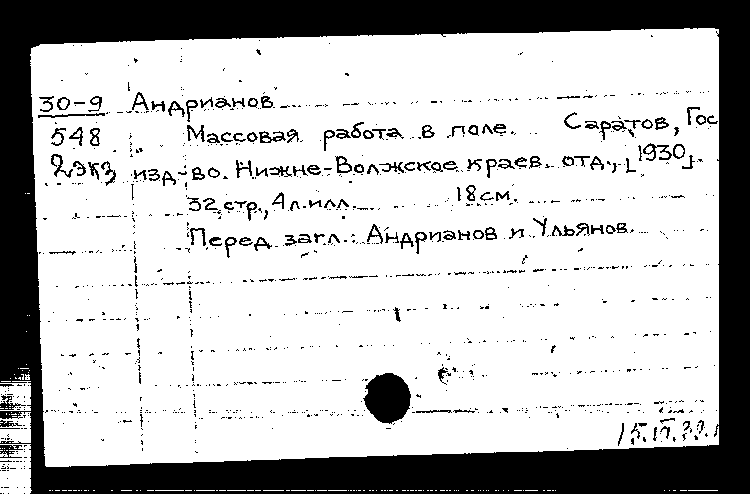 30-9 Андрианов
548 Массовая работа в поле. Саратов, Гос
2экз изд-во. Нижне-Волжское краев. отд., [1930].
32 стр., 4 л. илл. 18 см.
Перед загл.: Андрианов и Ульянов.